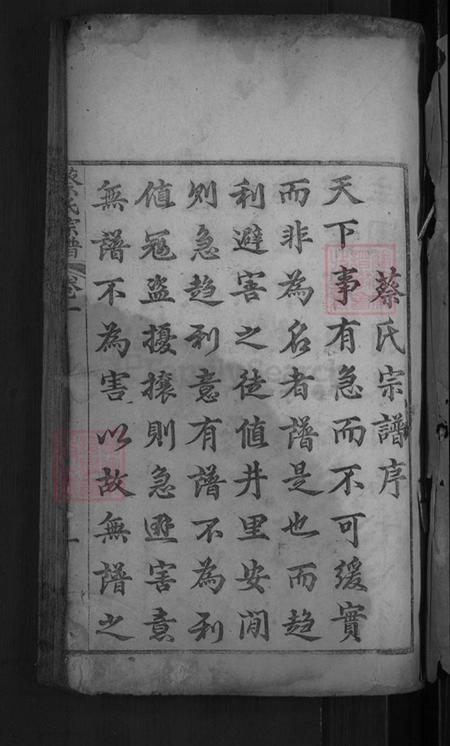 蔡氏宗譜序
天下事有急而不可緩實
而非為名者譜是也而趋
利避害之徒值井里安閒
則急趋利意有譜不為利
值冦盜擾攘則急避害意
無譜不為害以故無譜之
蔡氏宗譜 卷一 一